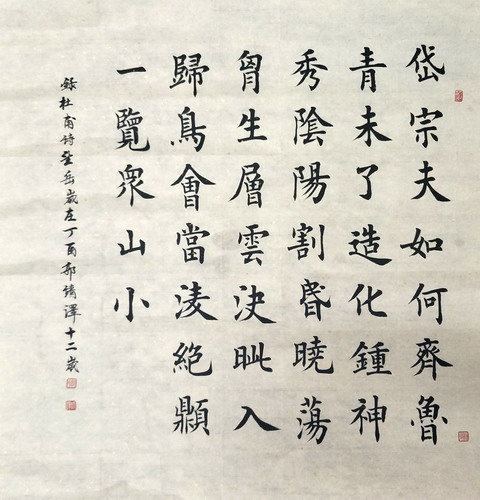 岱宗夫如何齊魯
青未了造化鍾神
秀陰陽割昬曉蕩
胷生層雲決眦入
歸鳥會當淩絶顚
一覽衆山小
錄杜甫詩望岳歲在丁酉澤十二歲